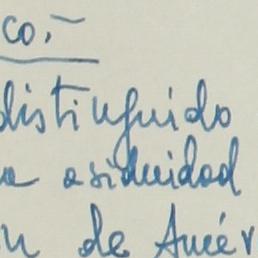 co.-
distinguido
a asiduidad
n de Amér